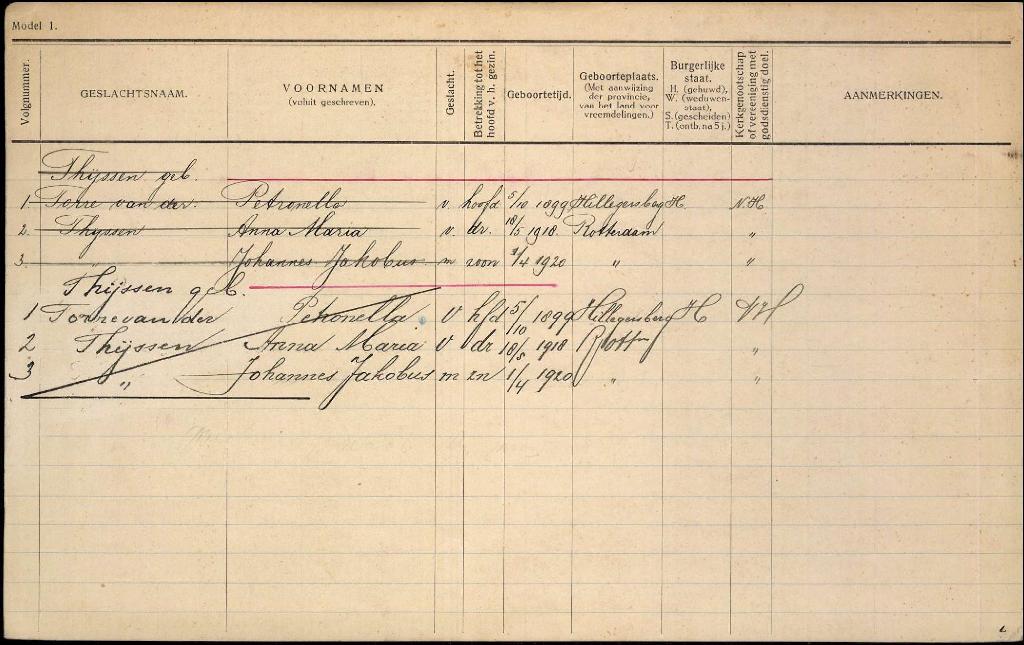 Model 1.
Volgnummer. GESLACHTSNAAM. VOORNAMEN (voluit geschreven). Geslacht. Betrekking tot het hoofd v. h. gezin. Geboortetijd. Geboorteplaats. (Met aanwijzing der provincie, van het land voor vreemdelingen.) Burgerlijke staat. H. (gehuwd), W. (weduwen-staat), S. (gescheiden) T. (ontb. na 5 j.) Kerkgenootschap of vereeniging met godsdienstig doel. AANMERKINGEN.
Thijssen geb.
1. Torre van der. Petronella v. hoofd 5/10 1899 Hillegersberg H. N.H
2. Thijssen Anna Maria v. dr. 18/5 1918. Rotterdam "
3. " Johannes Jakobus m zoon 1/4 1920 " "
Thijssen geb.
1 Torre van der Petronella v hfd 5/10 1899 Hillegersberg H NH
2 Thijssen Anna Maria v dr 18/5 1918 Rottm "
3 " Johannes Jakobus m zn 1/4 1920 " "